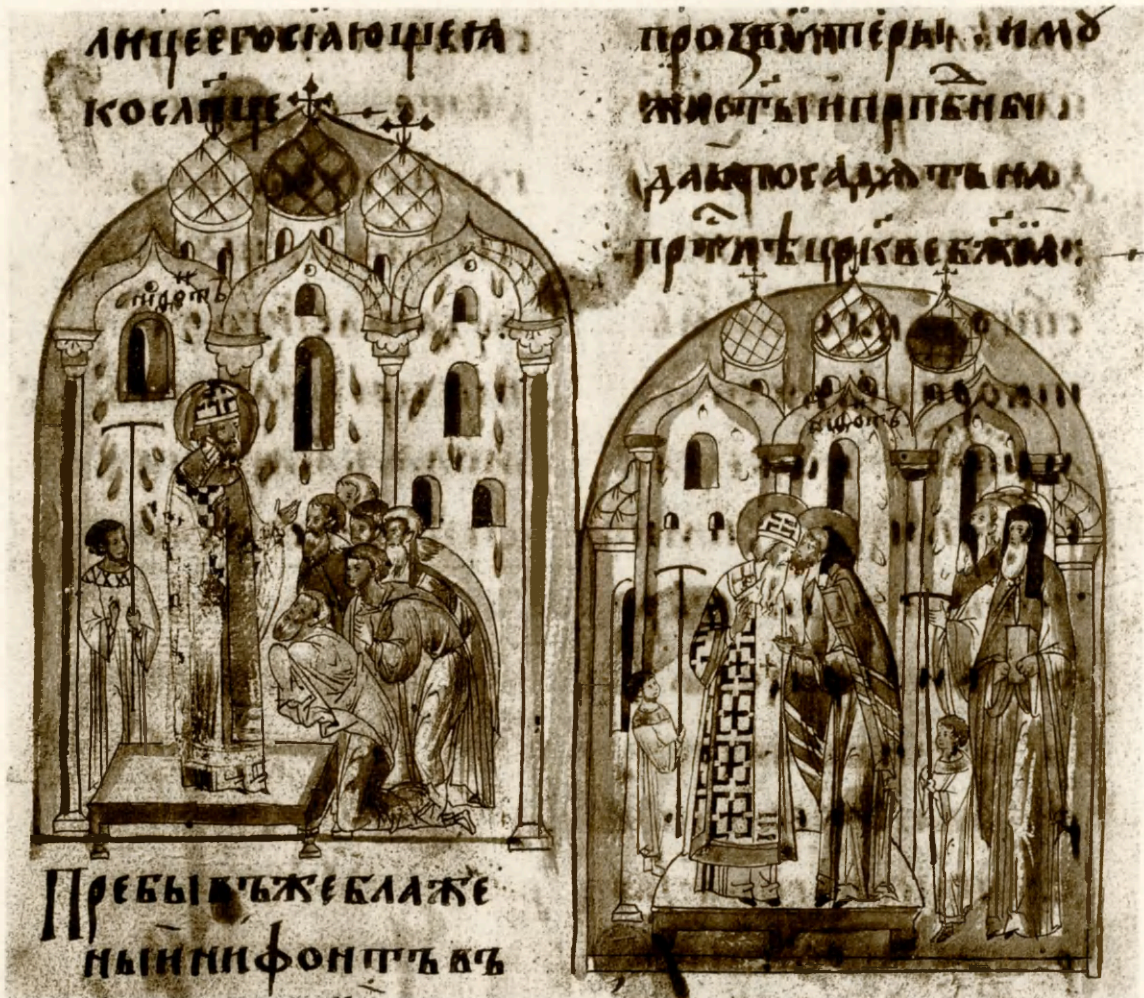 лицеегосїающеꙗ
косл҃нце
нифотъ
Пребывъжеблаже
ныйнифонтъвъ
прозвѵтеры · имѹ
жистыипрпⷣбны
даипосадѧтьна
прⷭ҇тлѣцр҃квебж҃їѧ:
нифотъ